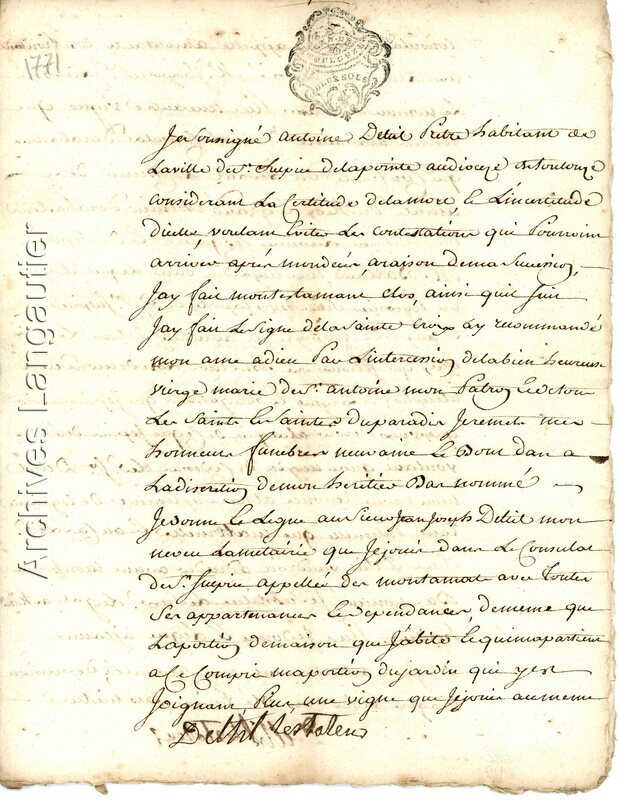 1771
TOULOUSE
DEUX SOLS
Je soussigné antoine Delul Pretre habitant de
La ville de st. Supice de la pointe au dioceze de toulouze
considerant La Certitude de la mort, & L'incertitude
d'icelle voulant Eviter Les contestations qui Pourroint
arriver aprés mon deces, a raison de ma succession,
Jay fait mon testamant clos, ainsi quil suit
Jay fait Le signe de la sainte croix Ay recommandé
mon ame a dieu Par L'intercession de la bien heureuse
vierge marie de st. antoine mon Patron & de tous
Les saints & saintes du paradis Je remets mes
honneurs funebres neuvaine & Bout dan a
La discretion de mon heritier Bas nommé
Je donne & Legue au sieur Jean Joseph Delul mon
neveu La metairie que Je jouis dans Le Consulat
de st. Supice appellée des montamat avec toutes
ses appartenances & dependances, de meme que
La portion de maison que J'abite & qui mapartient
a Ce Compris ma portion du jardin qui y est
Joignant, Plus une vigne que Je jouis au meme
Archives Langautier